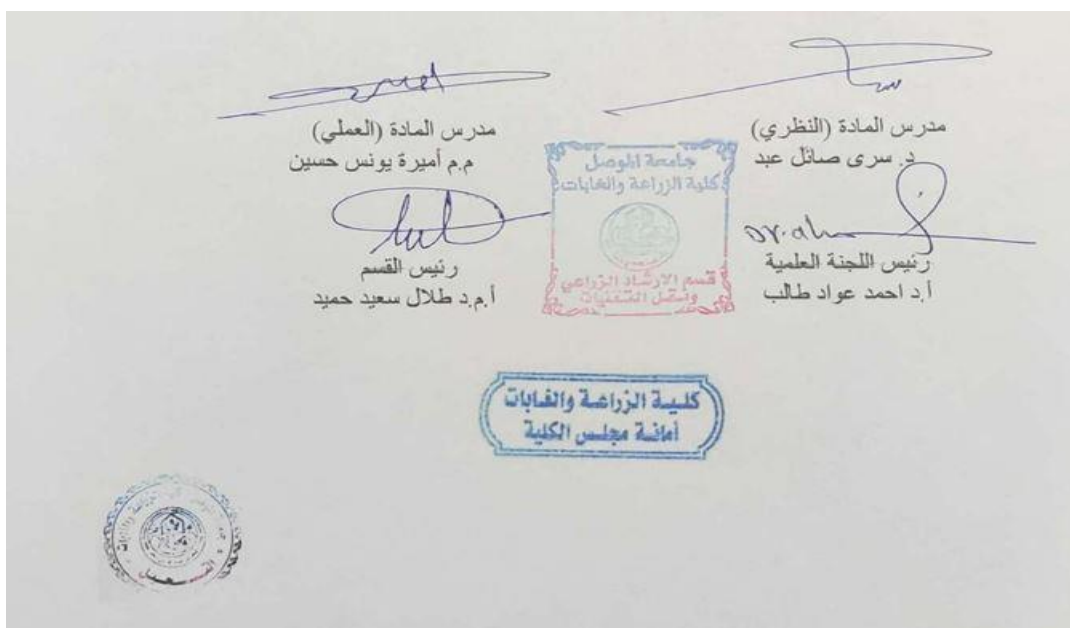 مدرس المادة (النظري)
د. سرى صائل عبد
مدرس المادة (العملي)
م.م أميرة يونس حسين
جامعة الموصل
كلية الزراعة والغابات
قسم الارشاد الزراعي
ونقل التقنيات
Dr. ah
رئيس اللجنة العلمية
أ.د احمد عواد طالب
رئيس القسم
أ.م.د طلال سعيد حميد
كلية الزراعة والغابات
أمانة مجلس الكلية